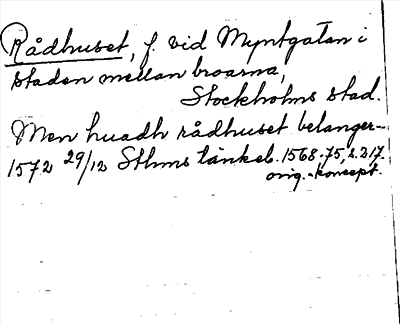 Rådhuset, f. vid Myntgatan i
staden mellan broarna,
Stockholms stad.
Men huadh rådhuset belanger-
1572 29/12 Sthms tänkeb. 1568-75, s. 217.
orig.-koncept.